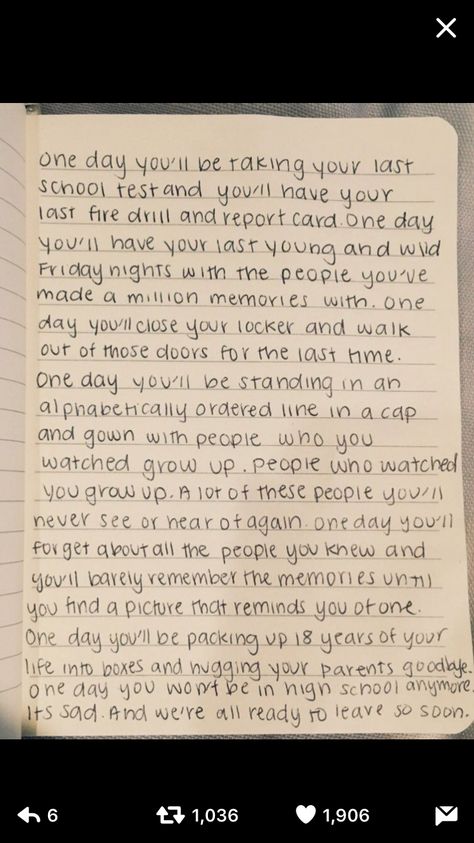 One day you'll be taking your last
school test and you'll have your
last fire drill and report card. One day
you'll have your last young and wild
Friday nights with the people you've
made a million memories with. One
day you'll close your locker and walk
out of those doors for the last time.
One day you'll be standing in an
alphabetically ordered line in a cap
and gown with people who you
watched grow up. People who watched
you grow up. A lot of these people you'll
never see or hear of again. One day you'll
forget about all the people you knew and
you'll barely remember the memories until
you find a picture that reminds you of one.
One day you'll be packing up 18 years of your
life into boxes and hugging your parents goodbye.
One day you won't be in high school anymore.
Its sad. And we're all ready to leave so soon.
6 1,036 1,906